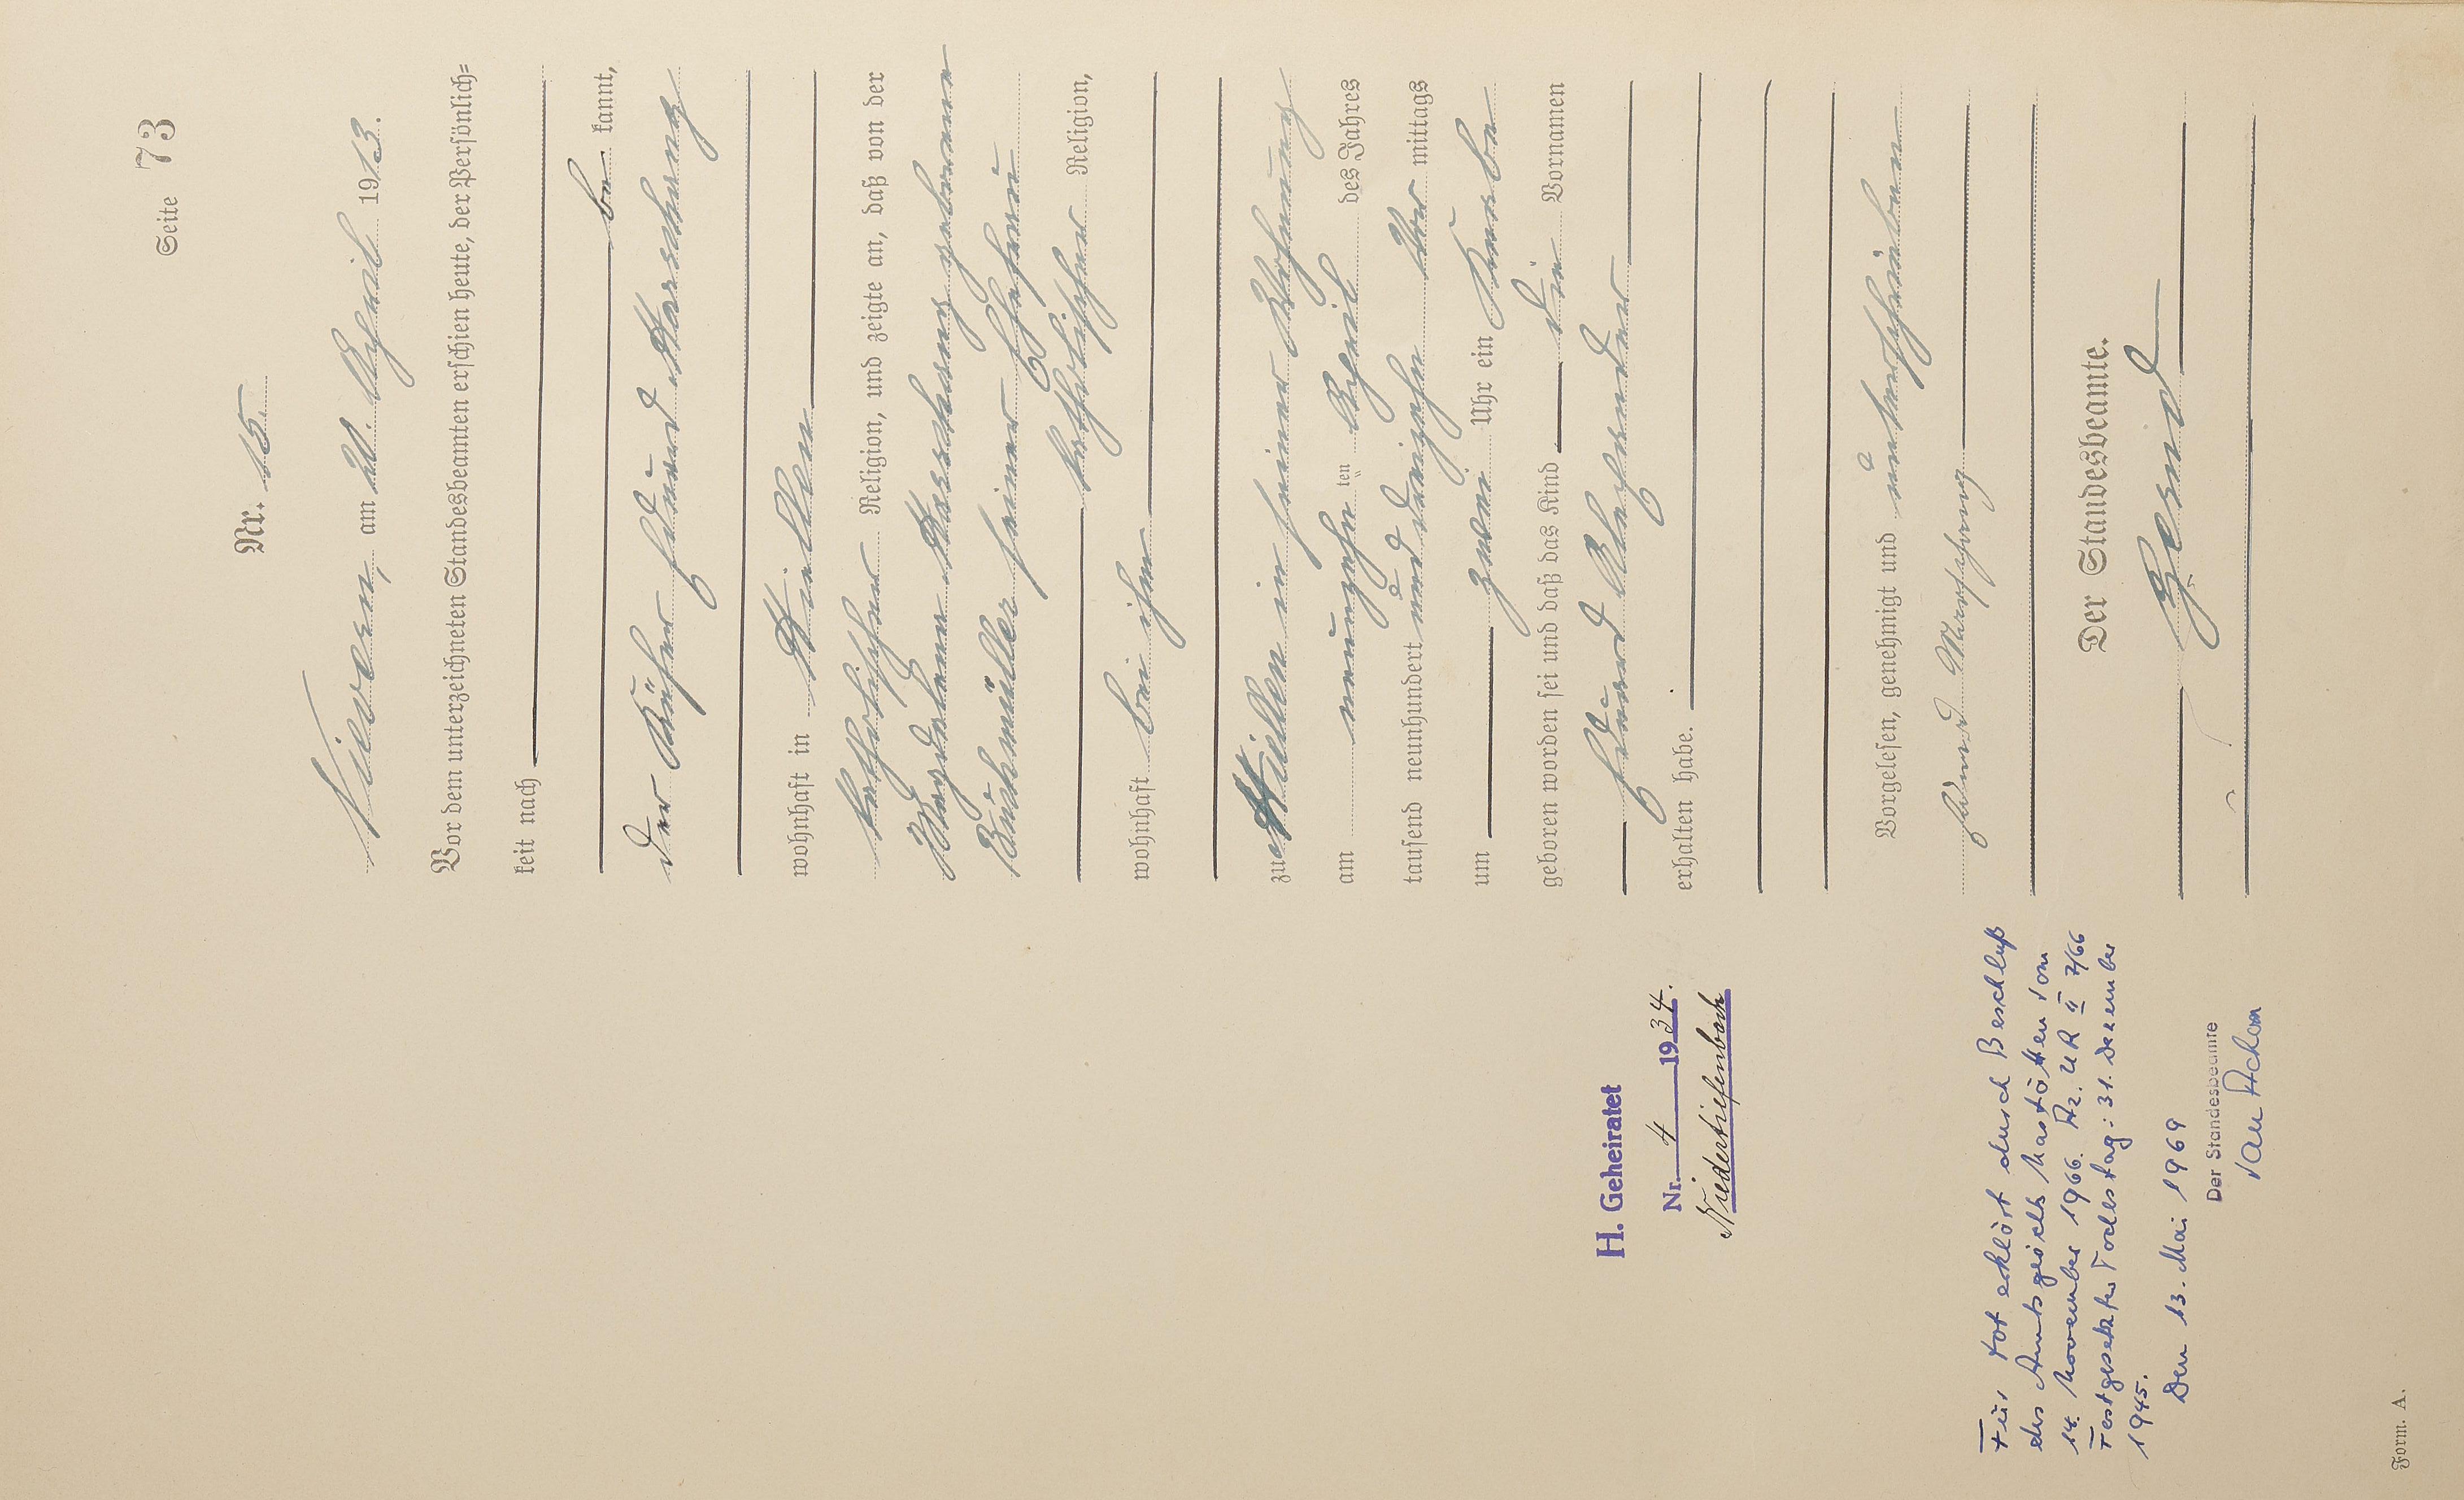 Seite 73
Nr. 15.
Nievern, am 21. April 1913.
Vor dem unterzeichneten Standesbeamten erschien heute, der Persönlich=
keit nach
be kannt,
der Küfer Eduard
wohnhaft in Miellen
katholischer Religion, und zeigte an, daß von der
Magdalena geborenen
Buchmüller seiner Ehefrau
katholischer Religion,
wohnhaft bei ihm
zu Miellen in seiner Wohnung
am neunzehn ten April des Jahres
tausend neunhundert und dreizehn Vor mittags
um zwei Uhr ein Knabe
geboren worden sei und daß das Kind die Vornamen
Eduard Alexander
erhalten habe.
Vorgelesen, genehmigt und unterschrieben
Eduard
Der Standesbeamte.
H. Geheiratet
Nr. 4 1934.
Niedertiefenbach
Für tot erklärt durch Beschluß
des Amtsgerichts Nastätten vom
14. November 1966. Az. UR II 7/66
Festgesetzter Todestag: 31. Dezember
1945.
Den 13. Mai 1969
Der Standesbeamte
Form. A.